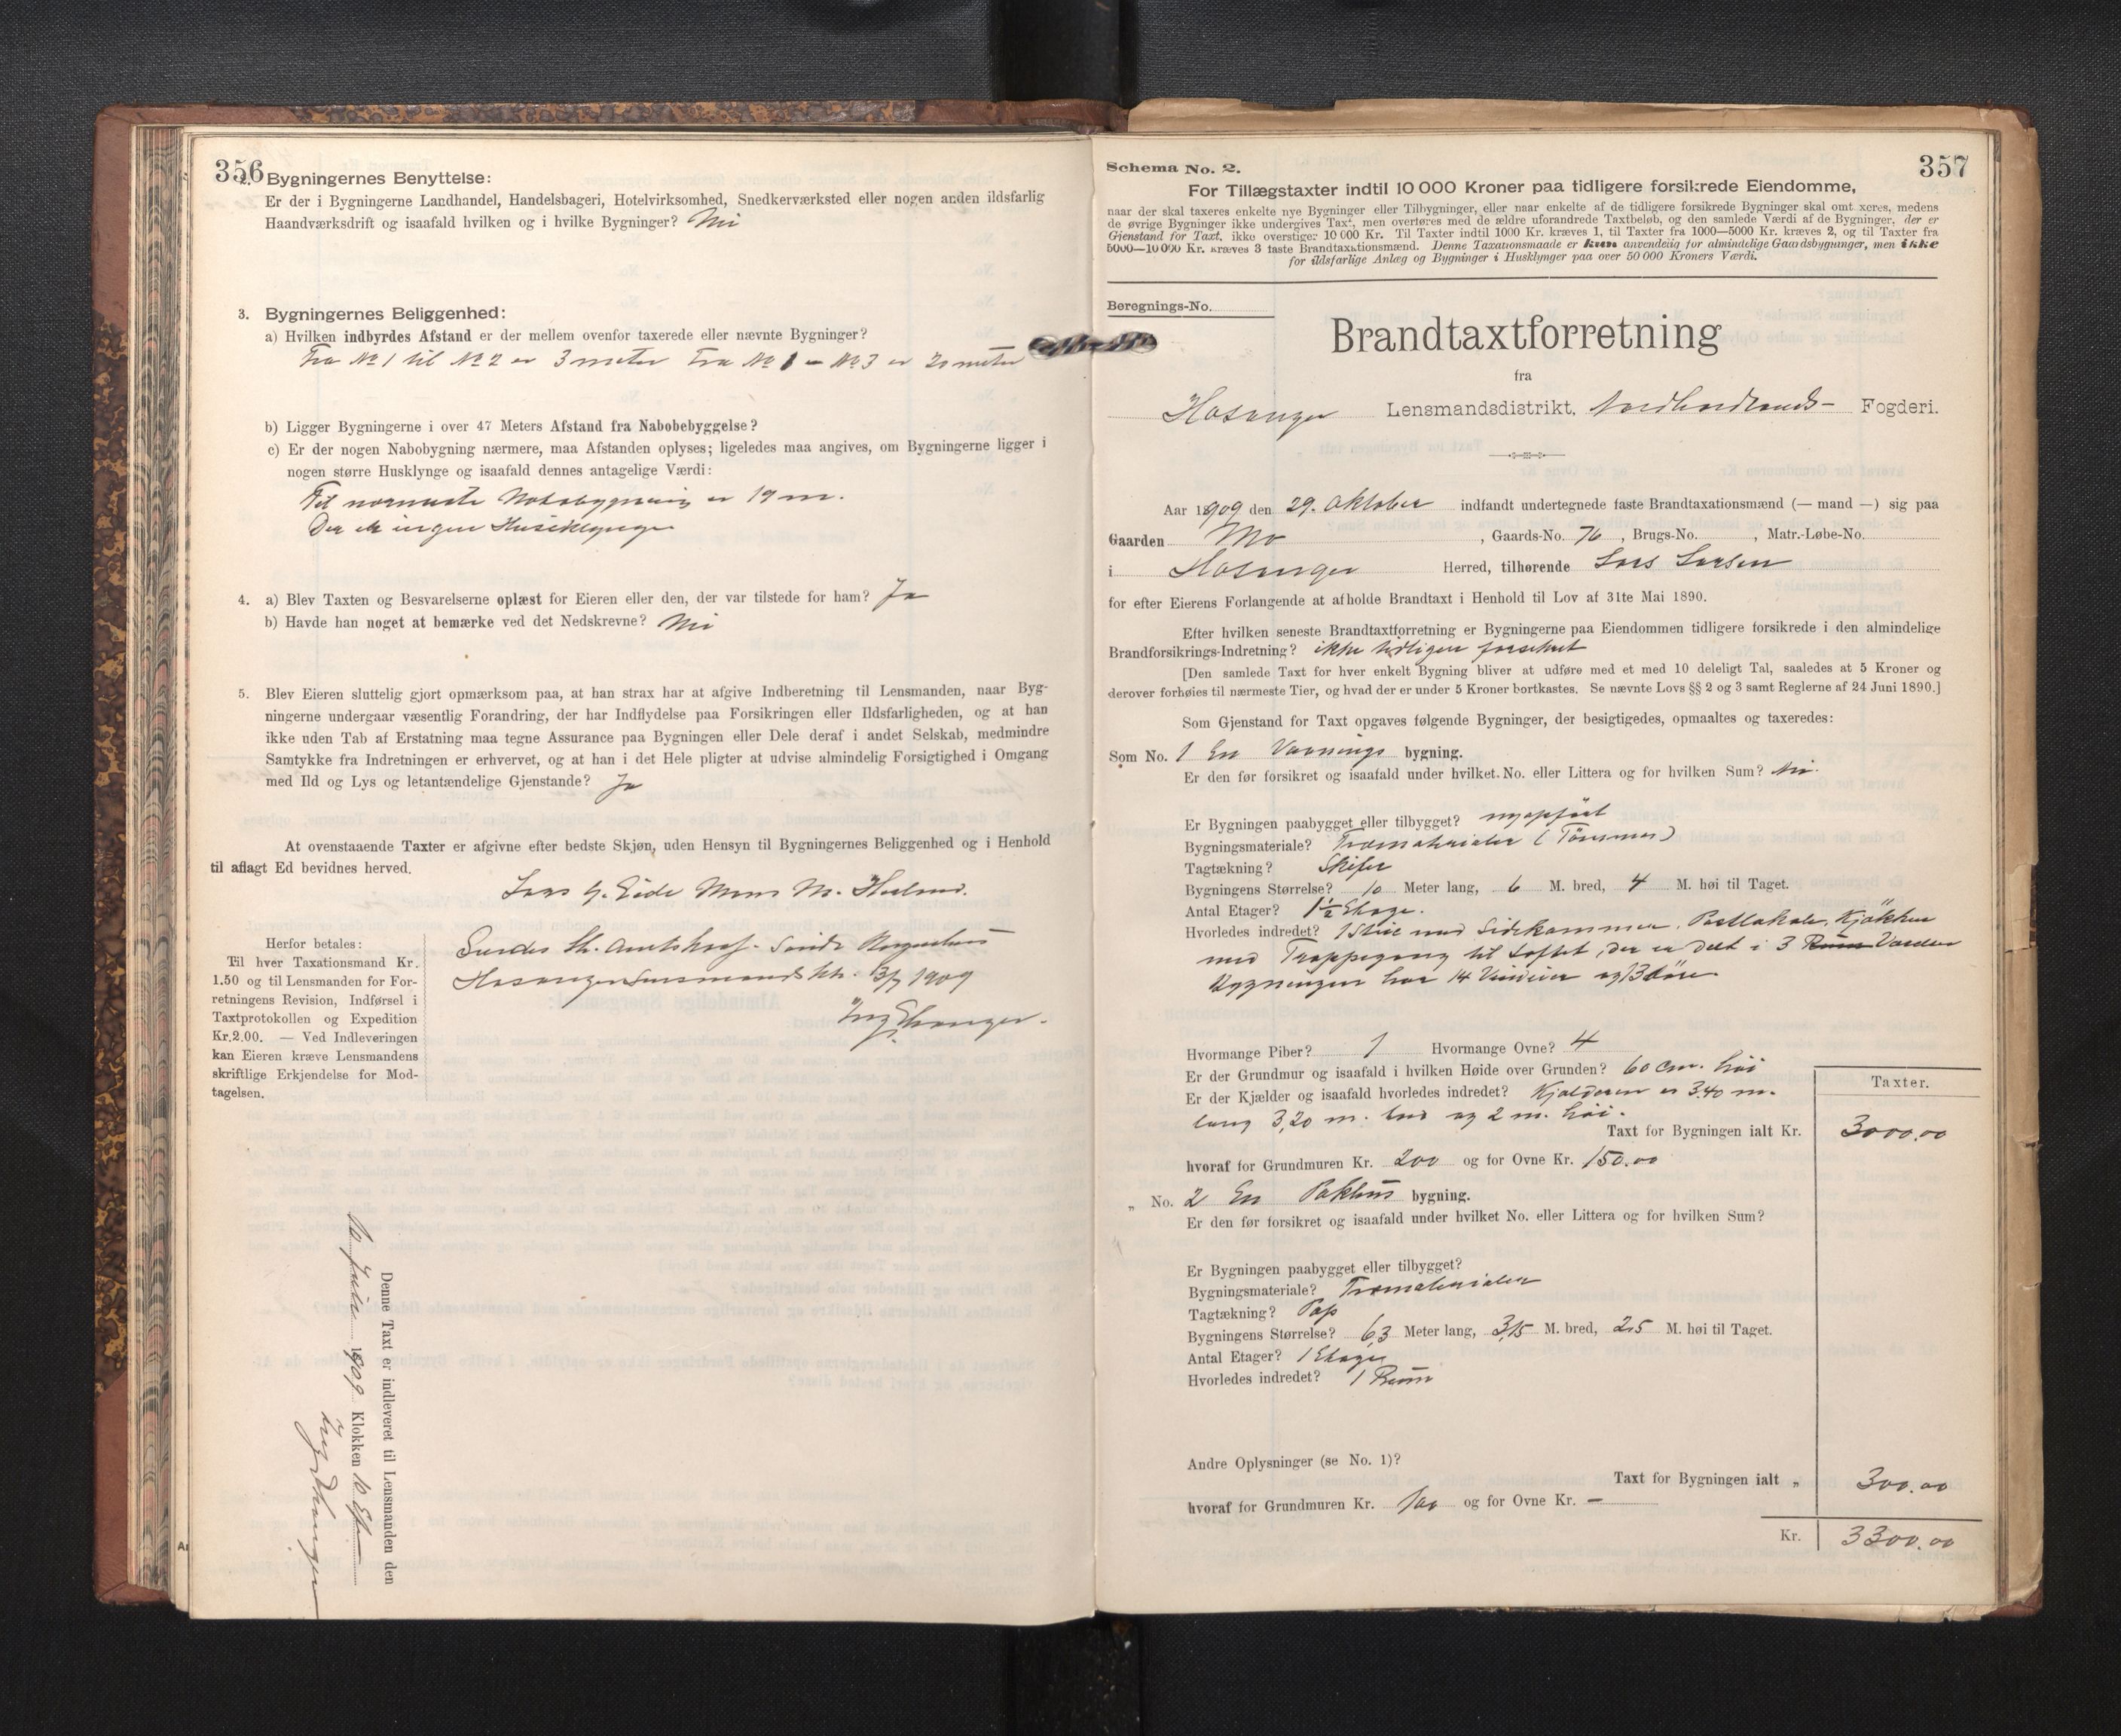 356
2. Bygningernes Benyttelse:
Er der i Bygningerne Landhandel, Handelsbageri, Hotelvirksomhed, Snedkerværksted eller nogen anden ildsfarlig
Haandværksdrift og isaafald hvilken og i hvilke Bygninger? Nei
3. Bygningernes Beliggenhed:
a) Hvilken indbyrdes Afstand er der mellem ovenfor taxerede eller nævnte Bygninger?
Fra No 1 til No 2 er 3 meter Fra No 1 - No 3 er 20 meter
b) Ligger Bygningerne i over 47 Meters Afstand fra Nabobebyggelse?
c) Er der nogen Nabobygning nærmere, maa Afstanden oplyses; ligeledes maa angives, om Bygningerne ligger i
nogen større Husklynge og isaafald dennes antagelige Værdi:
Til nærmeste Nabobygning er 19 m.
Der er ingen Husklynge
4. a) Blev Taxten og Besvarelserne oplæst for Eieren eller den, der var tilstede for ham? Ja
b) Havde han noget at bemærke ved det Nedskrevne? Nei
5. Blev Eieren sluttelig gjort opmærksom paa, at han strax har at afgive Indberetning til Lensmanden, naar Byg-
ningerne undergaar væsentlig Forandring, der har Indflydelse paa Forsikringen eller Ildsfarligheden, og at han
ikke uden Tab af Erstatning maa tegne Assurance paa Bygningen eller Dele deraf i andet Selskab, medmindre
Samtykke fra Indretningen er erhvervet, og at han i det Hele pligter at udvise almindelig Forsigtighed i Omgang
med Ild og Lys og letantændelige Gjenstande? Ja
At ovenstaaende Taxter er afgivne efter bedste Skjøn, uden Hensyn til Bygningernes Beliggenhed og i Henhold
til aflagt Ed bevidnes herved.
Lars Eide Mons M.
Herfor betales:
Til hver Taxationsmand Kr.
1.50 og til Lensmanden for For-
retningens Revision, Indførsel i
Taxtprotokollen og Expedition
Kr. 2.00. — Ved Indleveringen
kan Eieren kræve Lensmandens
skriftlige Erkjendelse for Mod-
tagelsen.
Sendes
Hosanger 1909
Denne Taxt er indleveret til Lensmanden den
10 1909 Klokken 10
357
Schema No. 2.
For Tillægstaxter indtil 10 000 Kroner paa tidligere forsikrede Eiendomme,
naar der skal taxeres enkelte nye Bygninger eller Tilbygninger, eller naar enkelte af de tidligere forsikrede Bygninger skal omtaxeres, medens
de øvrige Bygninger ikke undergives Taxt, men overføres med de ældre uforandrede Taxtbeløb, og den samlede Værdi af de Bygninger, der er
Gjenstand for Taxt, ikke overstiger 10 000 Kr. Til Taxter indtil 1000 Kr. kræves 1, til Taxter fra 1000—5000 Kr. kræves 2, og til Taxter fra
5000—10 000 Kr. kræves 3 faste Brandtaxationsmænd. Denne Taxationsmaade er kun anvendelig for almindelige Gaardsbygninger, men ikke
for ildsfarlige Anlæg og Bygninger i Husklynger paa over 50 000 Kroners Værdi.
Beregnings-No.
Brandtaxtforretning
fra
Hosanger Lensmandsdistrikt, Nordhordlands- Fogderi.
Aar 1909 den 29. Oktober indfandt undertegnede faste Brandtaxationsmænd (— mand —) sig paa
Gaarden Mo, Gaards-No. 76, Brugs-No. , Matr.-Løbe-No.
i Hosanger Herred, tilhørende Lars Larsen
for efter Eierens Forlangende at afholde Brandtaxt i Henhold til Lov af 31te Mai 1890.
Efter hvilken seneste Brandtaxtforretning er Bygningerne paa Eiendommen tidligere forsikrede i den almindelige
Brandforsikrings-Indretning? ikke tidligere forsikret
[Den samlede Taxt for hver enkelt Bygning bliver at udføre med et med 10 deleligt Tal, saaledes at 5 Kroner og
derover forhøies til nærmeste Tier, og hvad der er under 5 Kroner bortkastes. Se nævnte Lovs §§ 2 og 3 samt Reglerne af 24 Juni 1890.]
Som Gjenstand for Taxt opgaves følgende Bygninger, der besigtigedes, opmaaltes og taxeredes:
Som No. 1 En Vaanings bygning.
Er den før forsikret og isaafald under hvilket No. eller Littera og for hvilken Sum? Nei
Er Bygningen paabygget eller tilbygget? nyopført
Bygningsmateriale? Træmaterialer (Tømmer)
Tagtækning? Skifer
Bygningens Størrelse? 10 Meter lang, 6 M. bred, 4 M. høi til Taget.
Antal Etager? 1½ Etage.
Hvorledes indredet? 1 Stue med Sidekammer, Postlokale, Kjøkken
med Trappegang til Loftet, der er delt i 3 Rum Værelser
Bygningen har 14 Vinduer og 13 døre
Hvormange Piber? 1 Hvormange Ovne? 4
Er der Grundmur og isaafald i hvilken Høide over Grunden? 60 cm. høi
Er der Kjælder og isaafald hvorledes indredet? Kjælderen er 3.40 m.
lang 3,20 m. bred og 2 m. høi.
Taxter.
Taxt for Bygningen ialt Kr. 3000.00
hvoraf for Grundmuren Kr. 200 og for Ovne Kr. 150.00
„ No. 2 En Pakhus bygning.
Er den før forsikret og isaafald under hvilket No. eller Littera og for hvilken Sum?
Er Bygningen paabygget eller tilbygget?
Bygningsmateriale? Træmaterialer
Tagtækning? Pap
Bygningens Størrelse? 6,3 Meter lang, 3,15 M. bred, 2,5 M. høi til Taget.
Antal Etager? 1 Etage
Hvorledes indredet? 1 Rum
Andre Oplysninger (se No. 1)?
Taxt for Bygningen ialt „ 300.00
hvoraf for Grundmuren Kr. 100 og for Ovne Kr. —
Kr. 3300.00